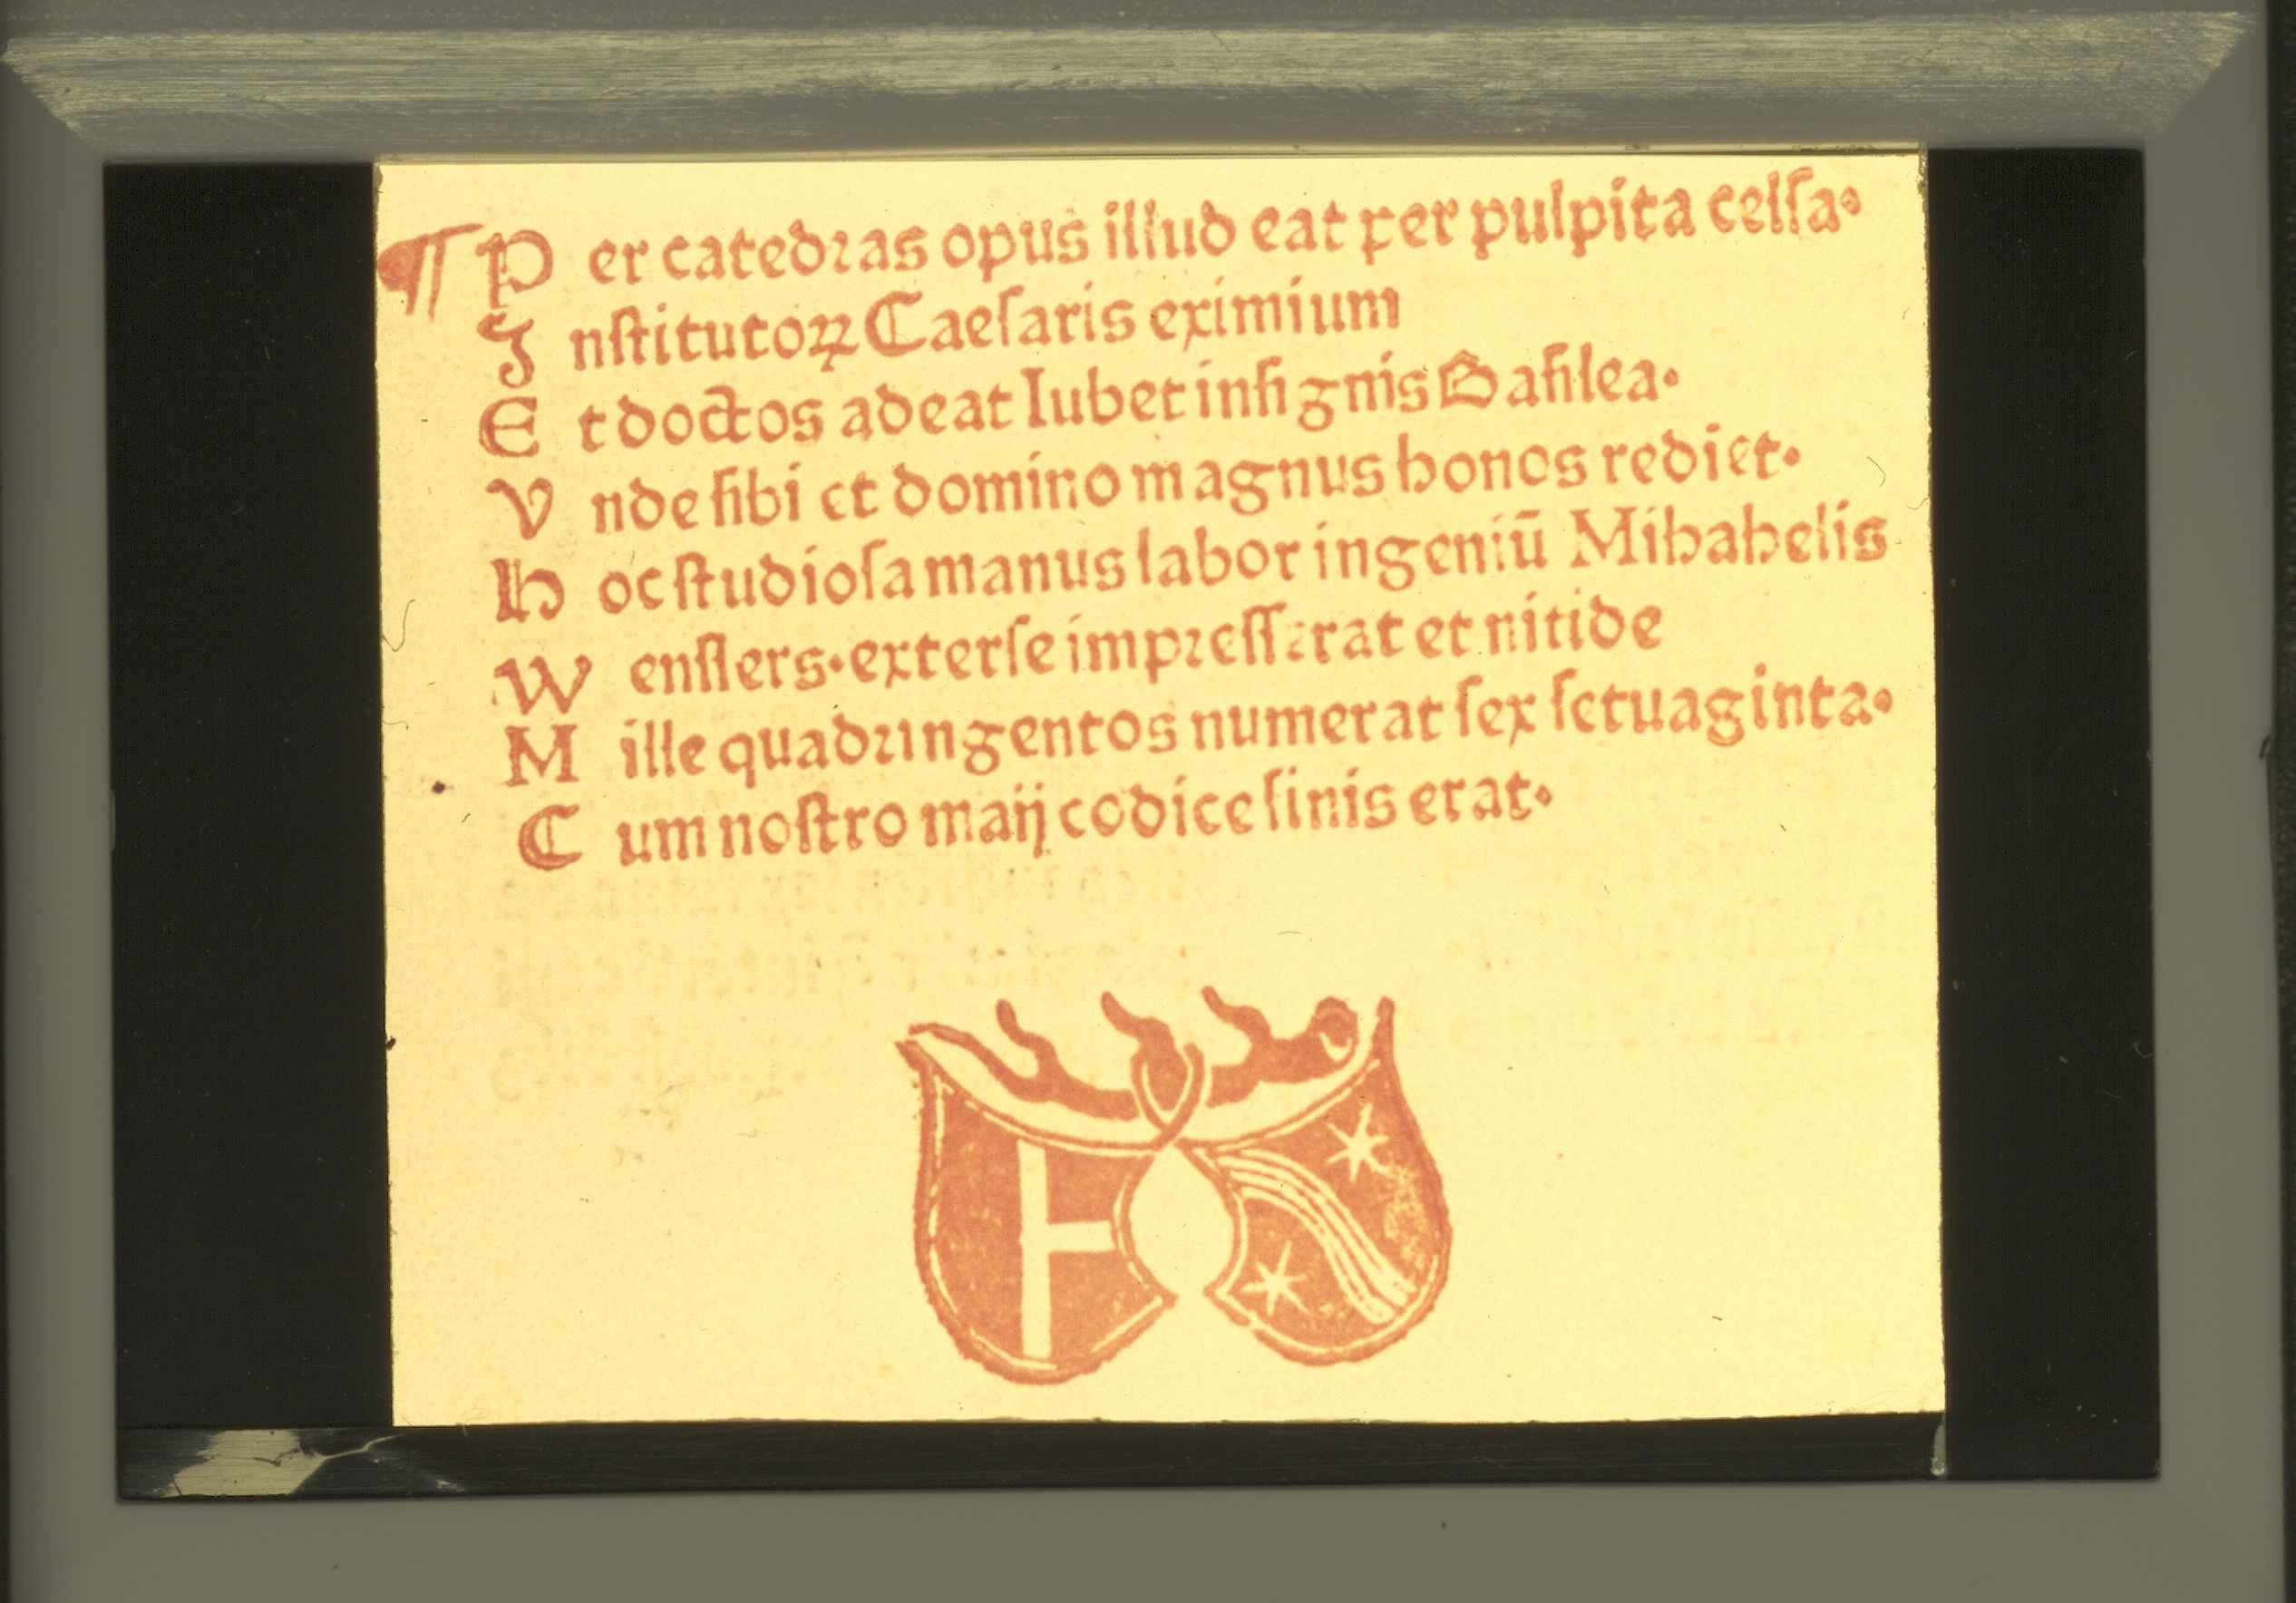 ¶ Per catedras opus illud eat per pulpita celsa.
Institutoꝝ Caesaris eximium
Et doctos adeat Iubet insignis Basilea.
Vnde sibi et domino magnus honos rediet.
Hoc studiosa manus labor ingeniū Mihahelis
Wenslers. exterse impresserat et nitide
Mille quadringentos numerat sex setuaginta.
Cum nostro maij codice finis erat.